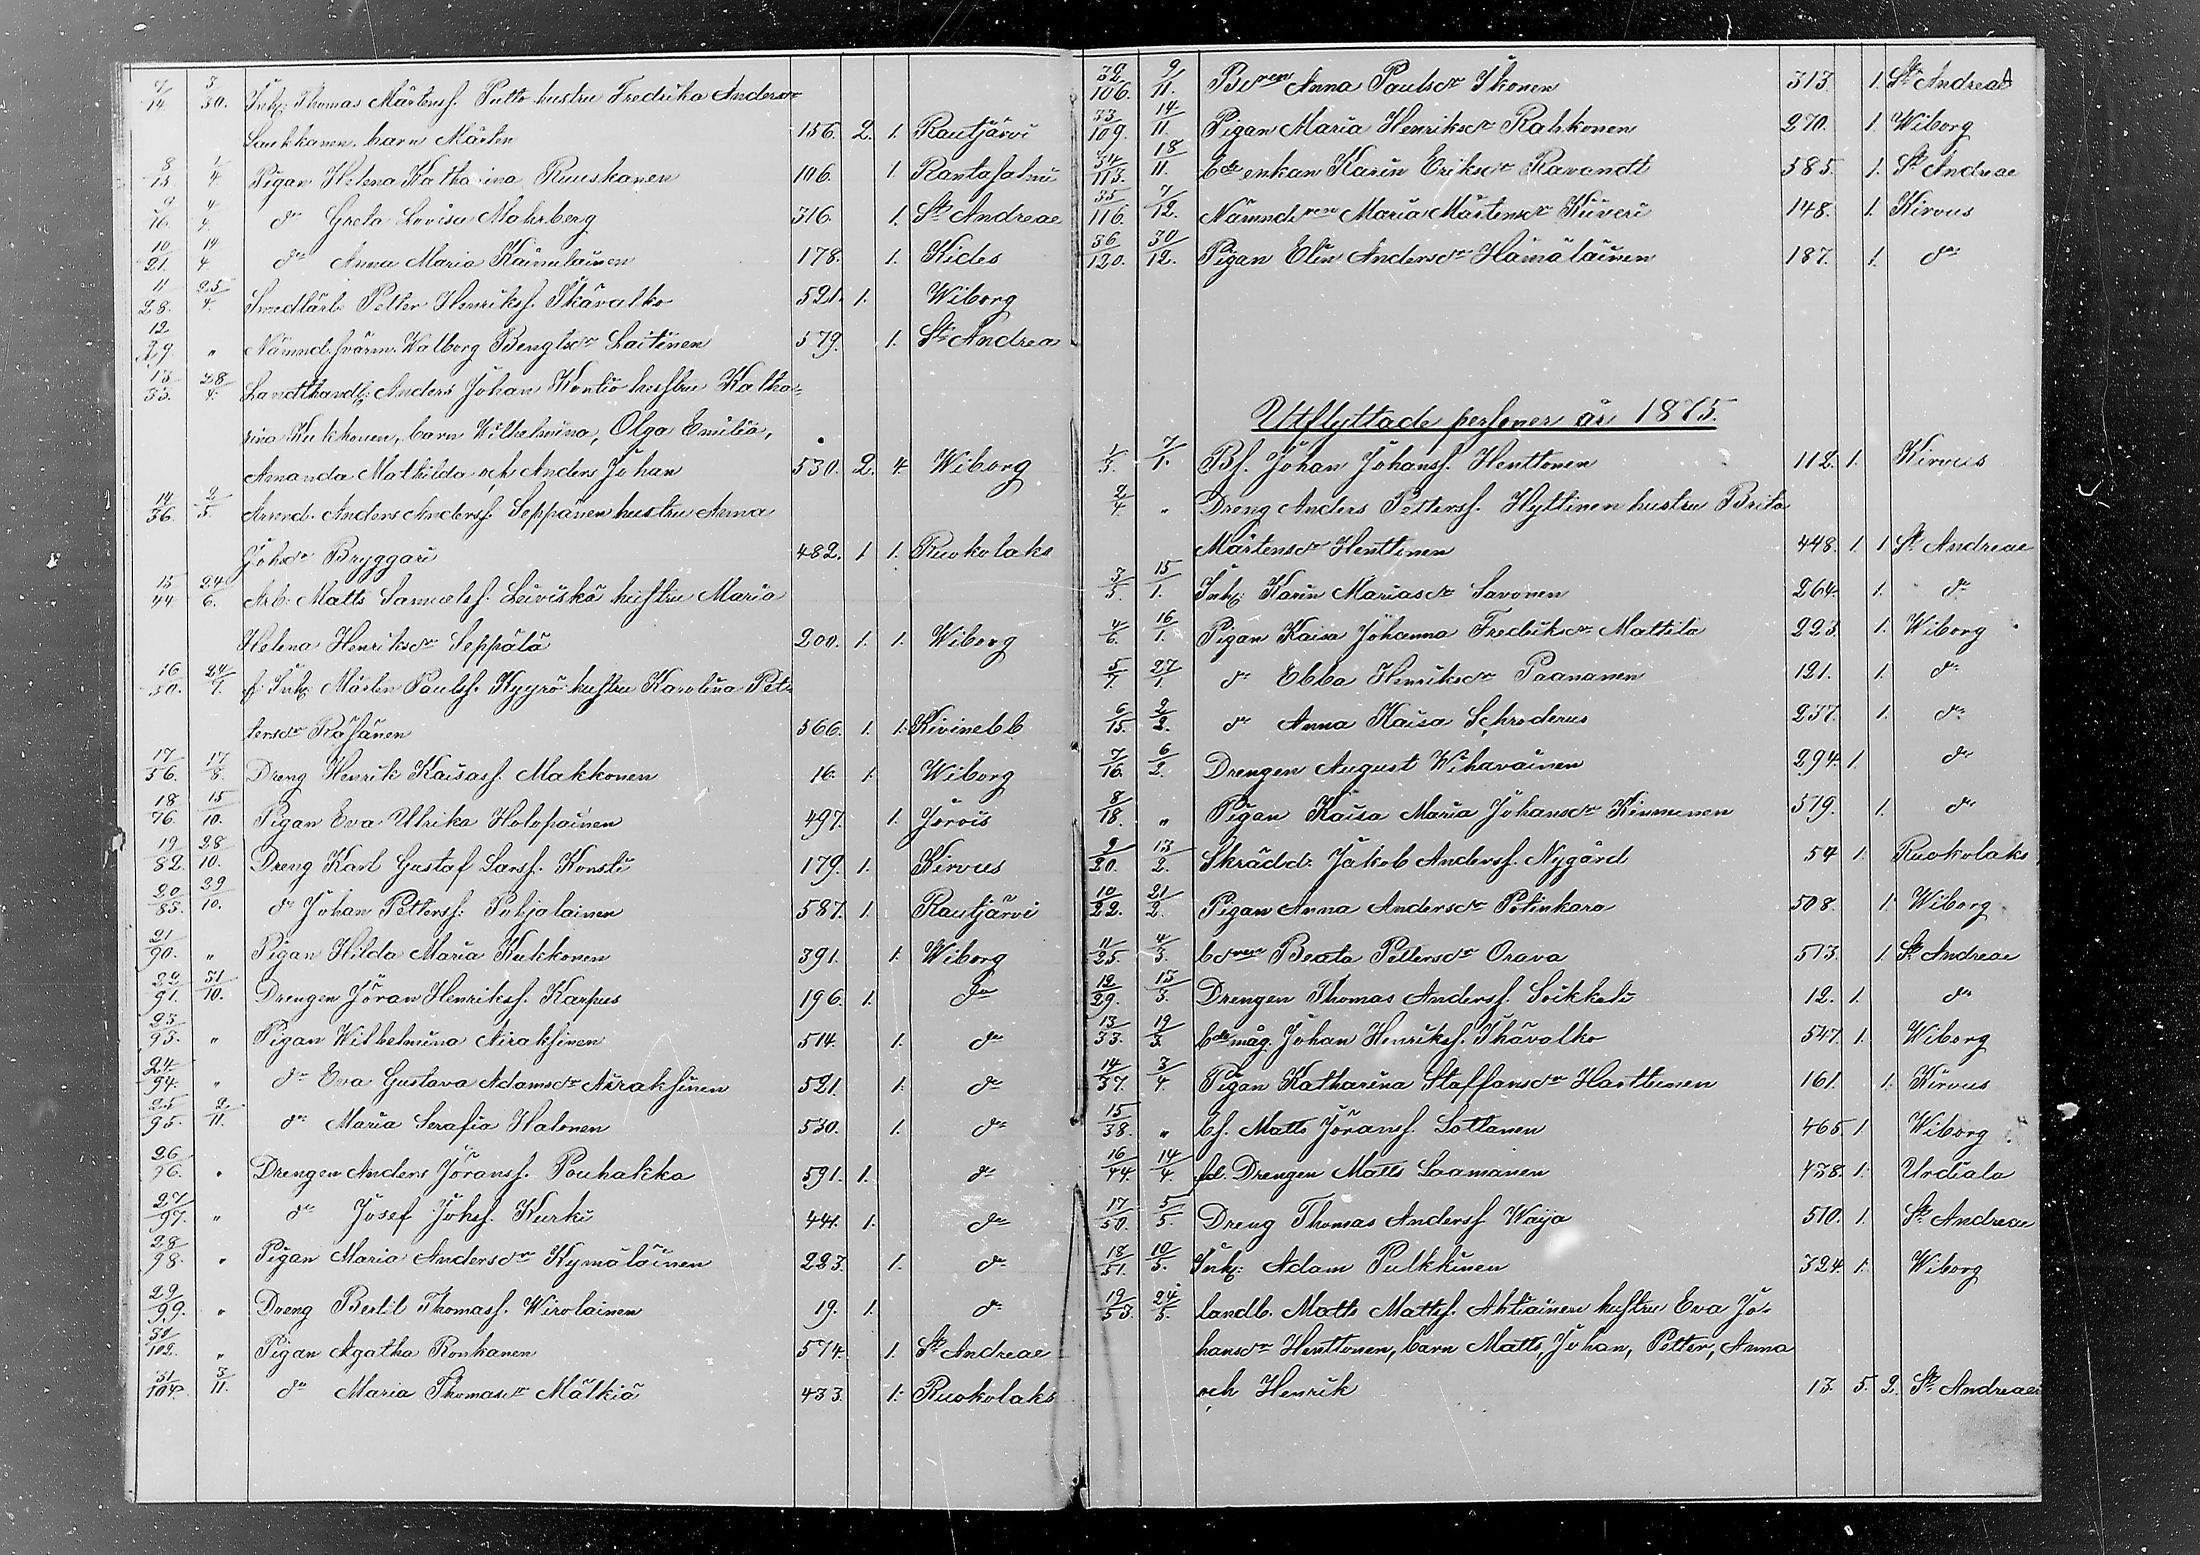 7/14. 3/30. Inh: Thomas Mårtenss. Putto hustru Fredrika Andersdr
Laukkanen, barn Mårten 156. 2. 1. Rautjärvi
8/15. 1/4. Pigan Helena Katharina Ruuskanen 106. 1. Rantasalmi
9/16. 4/4. dr Greta Lovisa Mohrberg 316. 1. St Andreae
10/21. 14/4 dr Anna Maria Kaimulainen 178. 1. Kides
11/28. 25/4. Smedlärl: Petter Henrikss. Ikävalko 521. 1. Wiborg
12/29. " Nämnd. svärm. Walborg Bengtsdr Laitinen 579. 1. St Andrea
13/33. 28/4. Landthandl: Anders Johan Kontio hustru Katha-
rina Kukkonen, barn Wilhelmina, Olga Emilia,
Amanda Mathilda och Anders Johan 530. 2. 4. Wiborg
14/36. 2/5. Arrend. Anders Anderss. Seppänen hustru Anna
Johsdr Bryggari 482. 1 1. Ruokolaks
15/44 24/6. Arb: Matts Samuelss. Leiviskä hustru Maria
Helena Henriksdr Seppälä 200. 1. 1. Wiborg
16/50. 24/7. f. Inh: Mårten Paulss. Kyyrö hustru Karolina Pet-
tersdr Räsänen 566. 1. 1. Kivinebb
17/56. 17/8. Dreng Henrik Kaisass. Makkonen 16. 1. Wiborg
18/76. 15/10. Pigan Eva Ulrika Holopainen 497. 1. Jorois
19/82. 28/10. Dreng Karl Gustaf Larss. Konsti 179. 1. Kirvus
20/85. 29/10. dr Johan Petterss. Pohjolainen 587. 1. Rautjärvi
21/90. " Pigan Hilda Maria Kukkonen 391. 1. Wiborg
22/91. 31/10. Drengen Jöran Henrikss. Karpus 196. 1. dr
23/93. " Pigan Wilhelmina Airaksinen 514. 1. dr
24/94. " dr Eva Gustava Adamsdr Airaksinen 521 1. dr
25/95. 2/11. dr Maria Serafia Halonen 530. 1. dr
26/96. " Drengen Anders Jöranss. Pouhakka 591. 1. dr
27/97. " dr Josef Johss. Kurki 441. 1. dr
28/98. " Pigan Maria Andersdr Kymäläinen 223. 1. dr
29/99. " Dreng Bertil Thomass. Wirolainen 19. 1. dr
30/102. " Pigan Agatha Ronkanen 574. 1. St Andreae
31/104. 3/11. dr Maria Thomasdr Mälkiä 433. 1. Ruokolaks
32/106. 9/11. Anna Paulsdr Ikonen 313. 1. St Andreae
33/109. 14/11. Pigan Maria Henriksdr Rahkonen 270. 1. Wiborg
34/113. 18/11. bde enkan Karin Eriksdr Ravandt 585. 1. St Andreae
35/116. 7/12. Maria Mårtensdr Kiiveri 148. 1. Kirvus
36/120. 30/12. Pigan Elin Andersdr Hämäläinen 187. 1. dr
Utflyttade personer år 1875.
1/3. 7/1. Bs. Johan Johanss. Henttonen 112. 1. Kirvus
2/4 " Dreng Anders Petterss. Hyttinen hustru Brita
Mårtensdr Henttinen 448. 1. 1 St Andreae
3/5. 15/1. Inh: Karin Mariasdr Savonen 264. 1. dr
4/6. 16/1. Pigan Kaisa Johanna Fredriksdr Mattila 223. 1. Wiborg
5/7. 27/1. dr Ebba Henriksdr Paananen 121. 1. dr
6/15. 2/2. dr Anna Kaisa Schroderus 237. 1. dr
7/16. 6/2. Drengen August Wihavainen 294. 1. dr
8/18. " Pigan Kaisa Maria Johansdr Kinnunen 519. 1. dr
9/20. 13/2. Skrädd: Jakob Anderss. Nygård 54 1. Ruokolaks
10/22. 21/2. Pigan Anna Andersdr Potinkara 508. 1. Wiborg
11/25. 4/3. Beata Pettersdr Orava 513. 1 St Andreae
12/29. 13/3. Drengen Thomas Anderss. Soikkeli 12. 1. dr
13/33. 19/3. bde måg. Johan Henrikss. Ikävalko 547. 1. Wiborg
14/37. 3/4. Pigan Katharina Staffansdr Harttunen 161. 1. Kirvus
15/38. " bs. Matts Jöranss. Sottanen 465. 1 Wiborg
16/44. 14/4. fd. Drengen Matts Laamanen 438. 1. Urdiala
17/50. 5/5. Dreng Thomas Anderss Waija 510. 1. St Andreae
18/51. 10/5. Inh: Adam Pulkkinen 324. 1. Wiborg
19/53. 24/5. landb. Matts Mattss. Ahtiainen hustru Eva Jo-
hansdr Henttonen, barn Matts, Johan, Petter, Anna
och Henrik 13. 5. 2. St Andreae